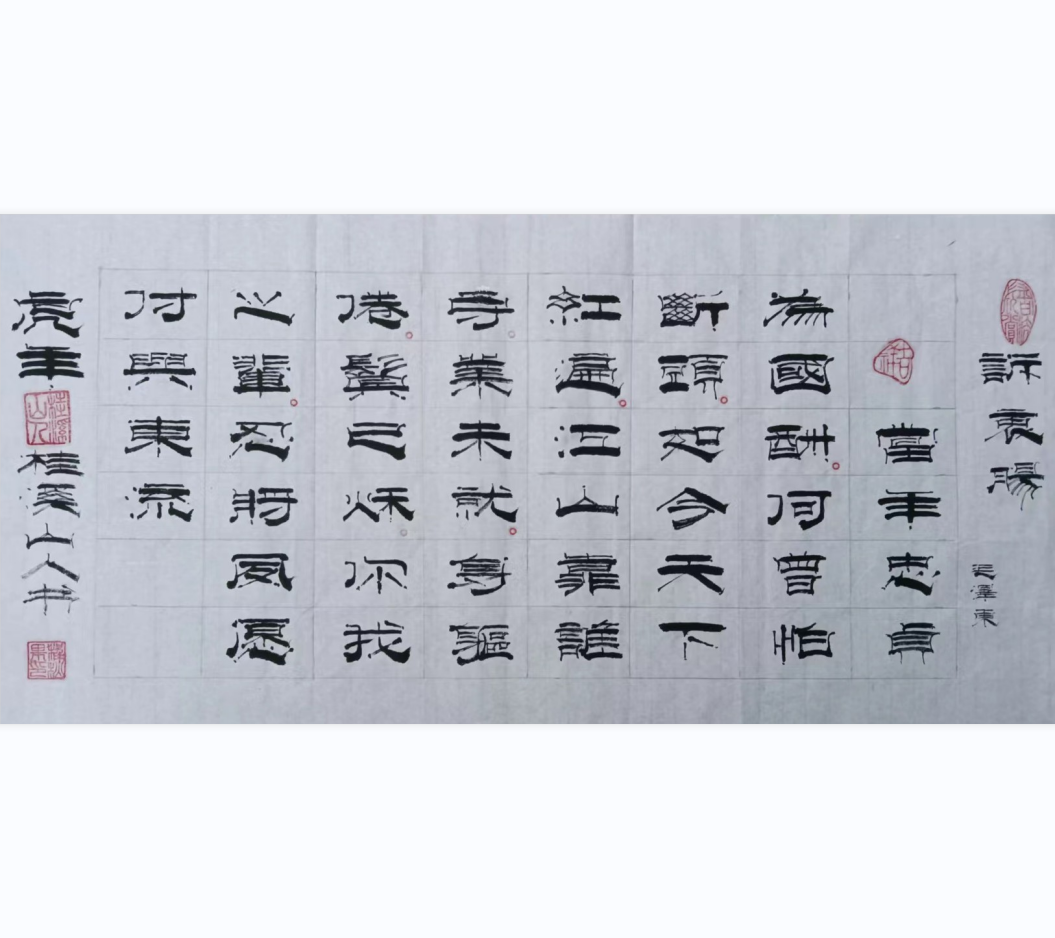 訴衷腸
毛澤東
當年忠貞
為國酬何曾怕
斷頭如今天下
紅遍江山靠誰
守業未就身軀
倦鬢已秋你我
之輩忍將夙愿
付與東流
虎年
桂溪山人
桂溪山人书